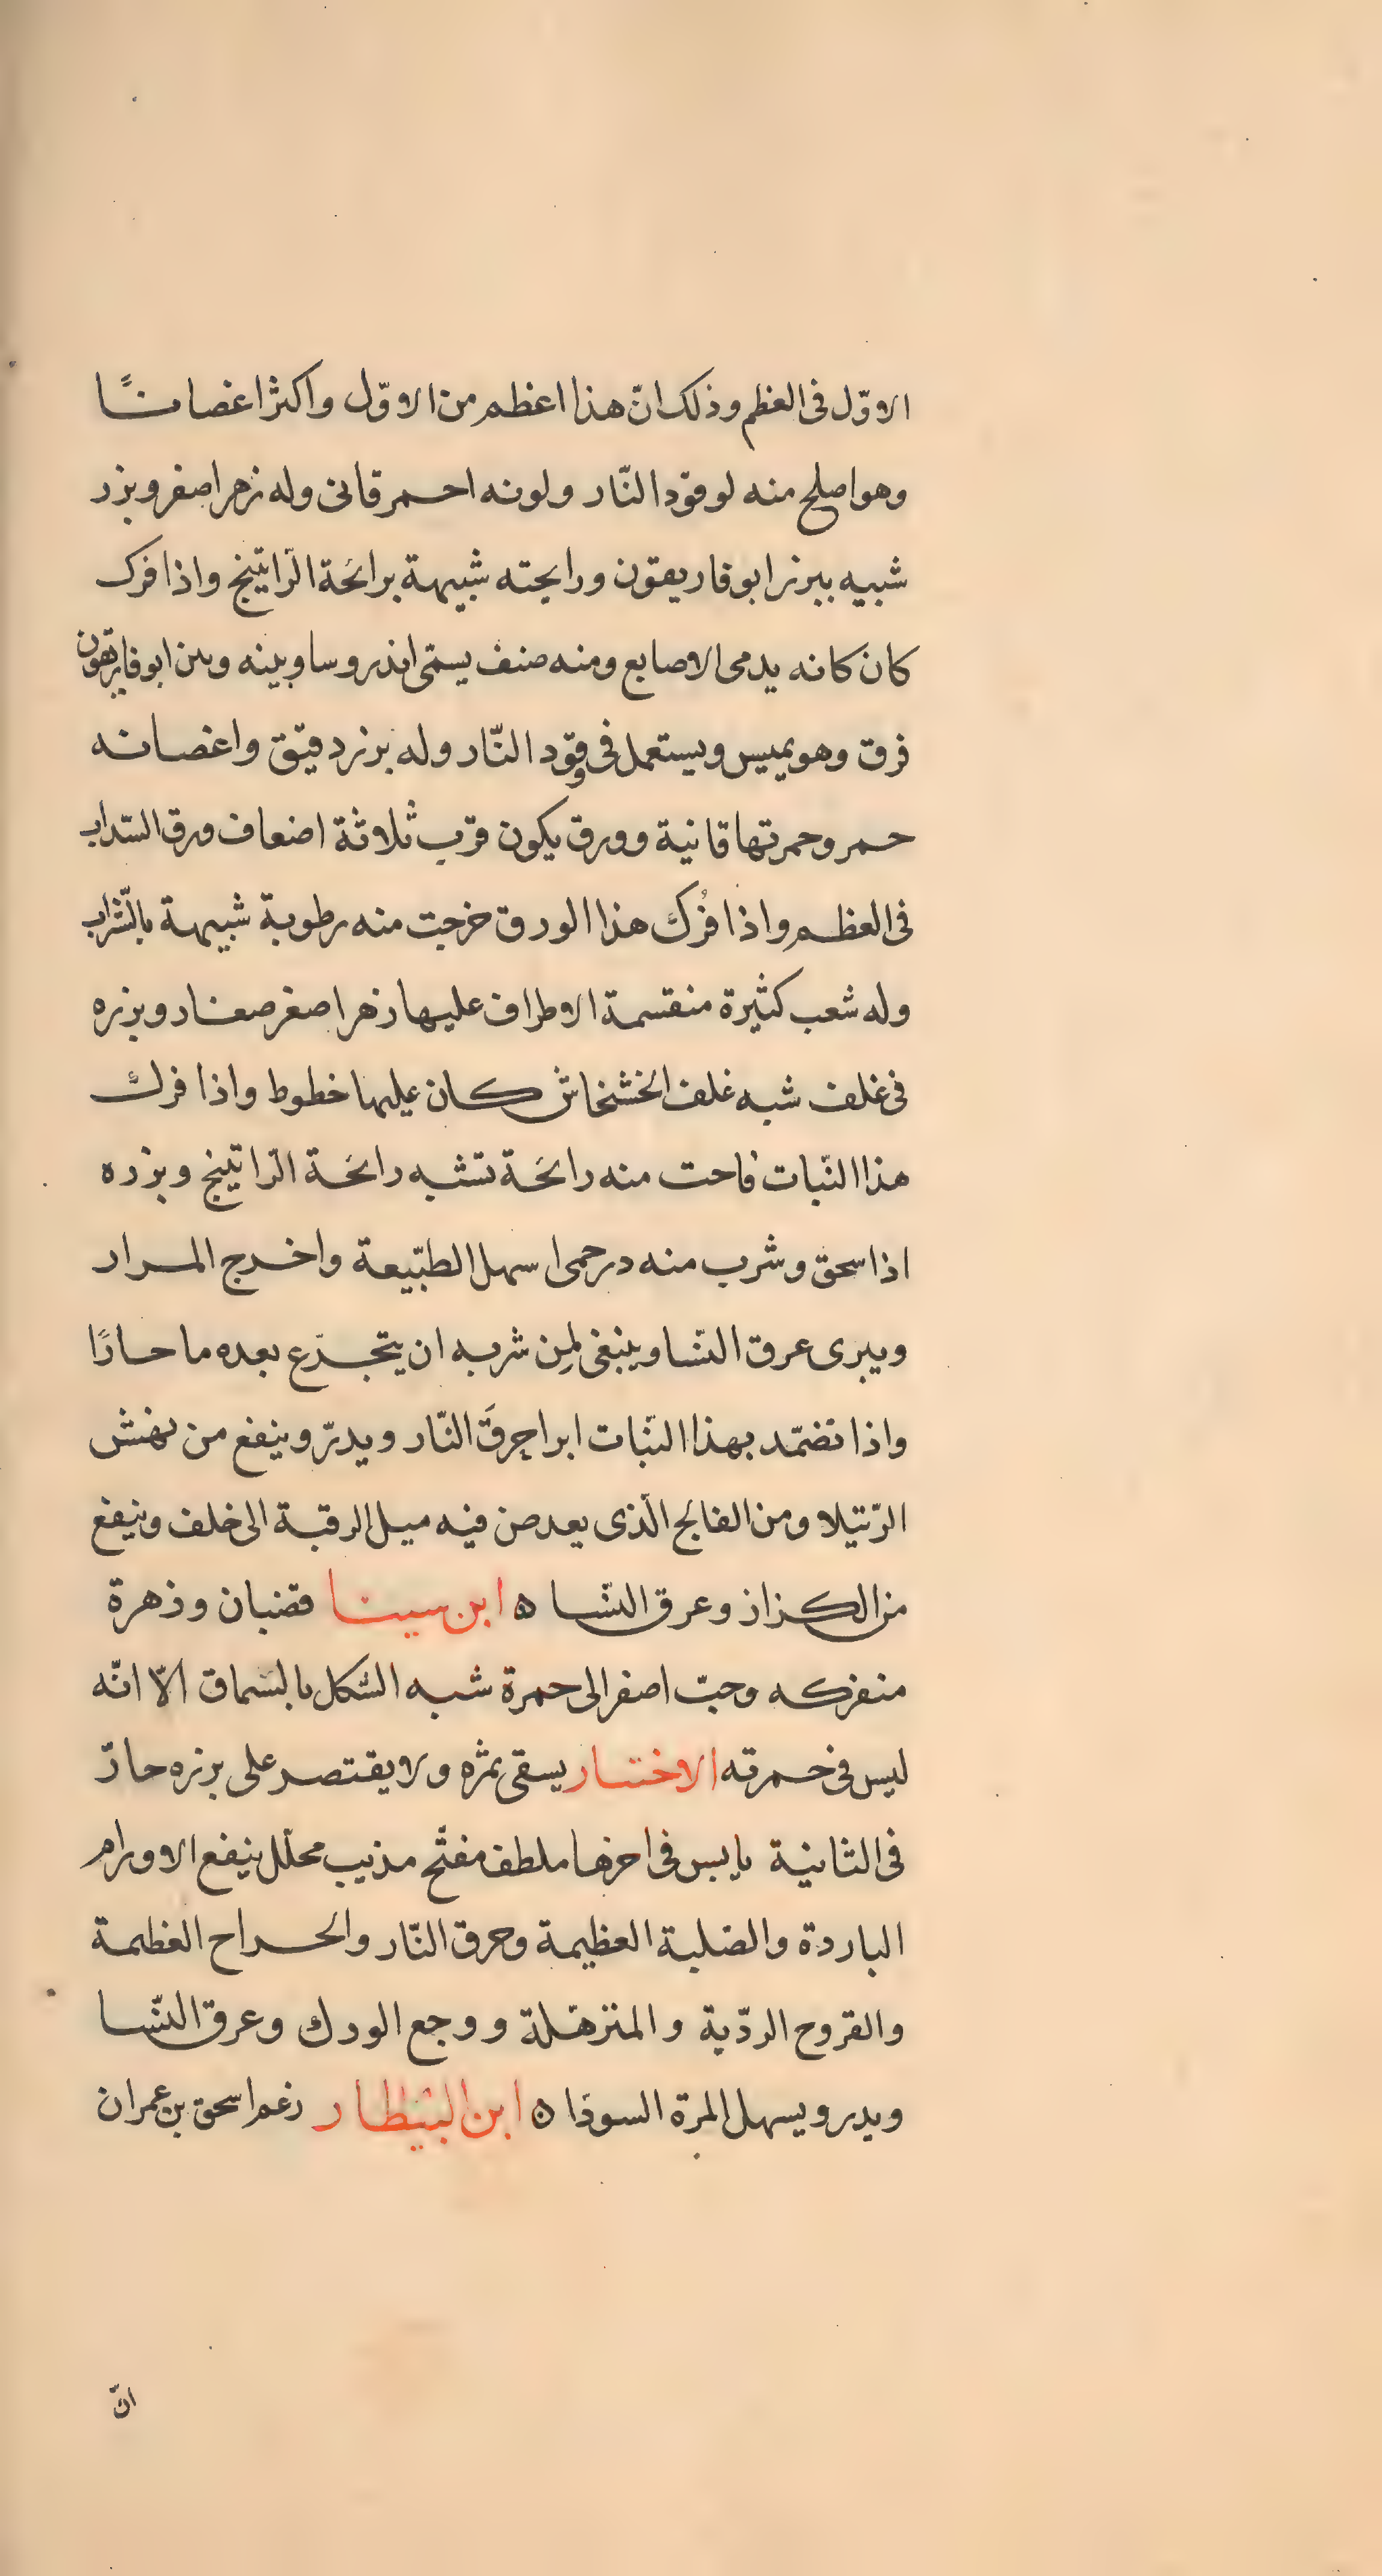 الاوّل فى العظم وذلك انّ هذا اعظم من الاوّل واكثر اغصانًا
وهو اصلح منه لوقود النّار ولونه احمر قانى وله زهر اصفر وبزر
شبيه ببزر ابوفاريقون ورايحته شبيهة برائحة الرّاتينج واذا فرك
كان كانه يدمى الاصابع ومنه صنف يسمّى اندروسا وبينه وبين ابوفاريقون
فرق وهو يميس ويستعمل فى وقود النّار وله بزر دقيق واغصانه
حمر وحمرتها قانية وورق يكون قرب ثلاثة اضعاف ورق السّداب
فى العظم واذا فُرك هذا الورق خرجت منه رطوبة شبيهة بالشّراب
وله شعب كثيرة منقسمة الاطراف عليها زهر اصفر صغار وبزره
فى غلف شبه غلف الخشخاش كان عليها خطوط واذا فرك
هذا النّبات فاحت منه رائحة تشبه رائحة الرّاتينج وبزره
اذا سحق وشرب منه درحمى اسهل الطّبيعة واخرج المرار
ويبرى عرق النّسا وينبغى لمن شربه ان يتجرّع بعده ما حارًّا
واذا تضمّد بهذا النّبات ابرا حرقَ النّار ويدرّ وينفع من نهش
الرّتيلا ومن الفالج الّذى يعرض فيه ميل الرقبة الى خلف وينفع
من الكزاز وعرق النّسا ه ابن سينا قضبان وزهرة
منفركه وحبّ اصفر الى حمرة شبه الشّكل بالسّماق الّا انّه
ليس فى حمرته الاختيار يسقى ثمره ولا يقتصر على بزره حارّ
فى الثانية يابس فى اخرها ملطف مفتّح مذيب محلّل ينفع الاورام
الباردة والصّلبة العظيمة وحرق النّار والجراح العظيمة
والقروح الردّية والمترهّلة ووجع الورك وعرق النّسا
ويدر ويسهل المرة السودا ه ابن البيطار زعم اسحق بن عمران
انّ